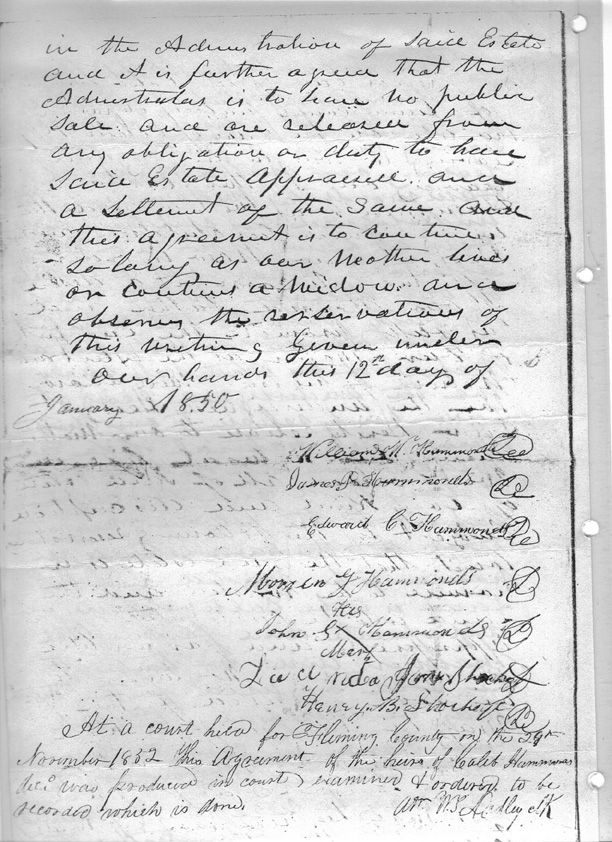 in the Adminstration of Said Estate
and it is further agreed that the
Adminstrator is to have no public
Sale. and are released from
any obligation or duty to have
Said Estate Appraised. and
a Settlement of the Same. And
this agreement is to continue
so long as our Mother lives
or continues a Widow. and
observes the reservations of
this writing Given under
our hands this 12th day of
January 1850
William W. Hammonds
James J Hammonds
Edward C. Hammonds
G Hammonds
His
John X Hammonds
Mark
Henry B.
At a court held for Fleming County on the
November 1852 This Agreement of the heirs of Caleb Hammonds
decd was produced in court examined & ordered to be
recorded which is done.